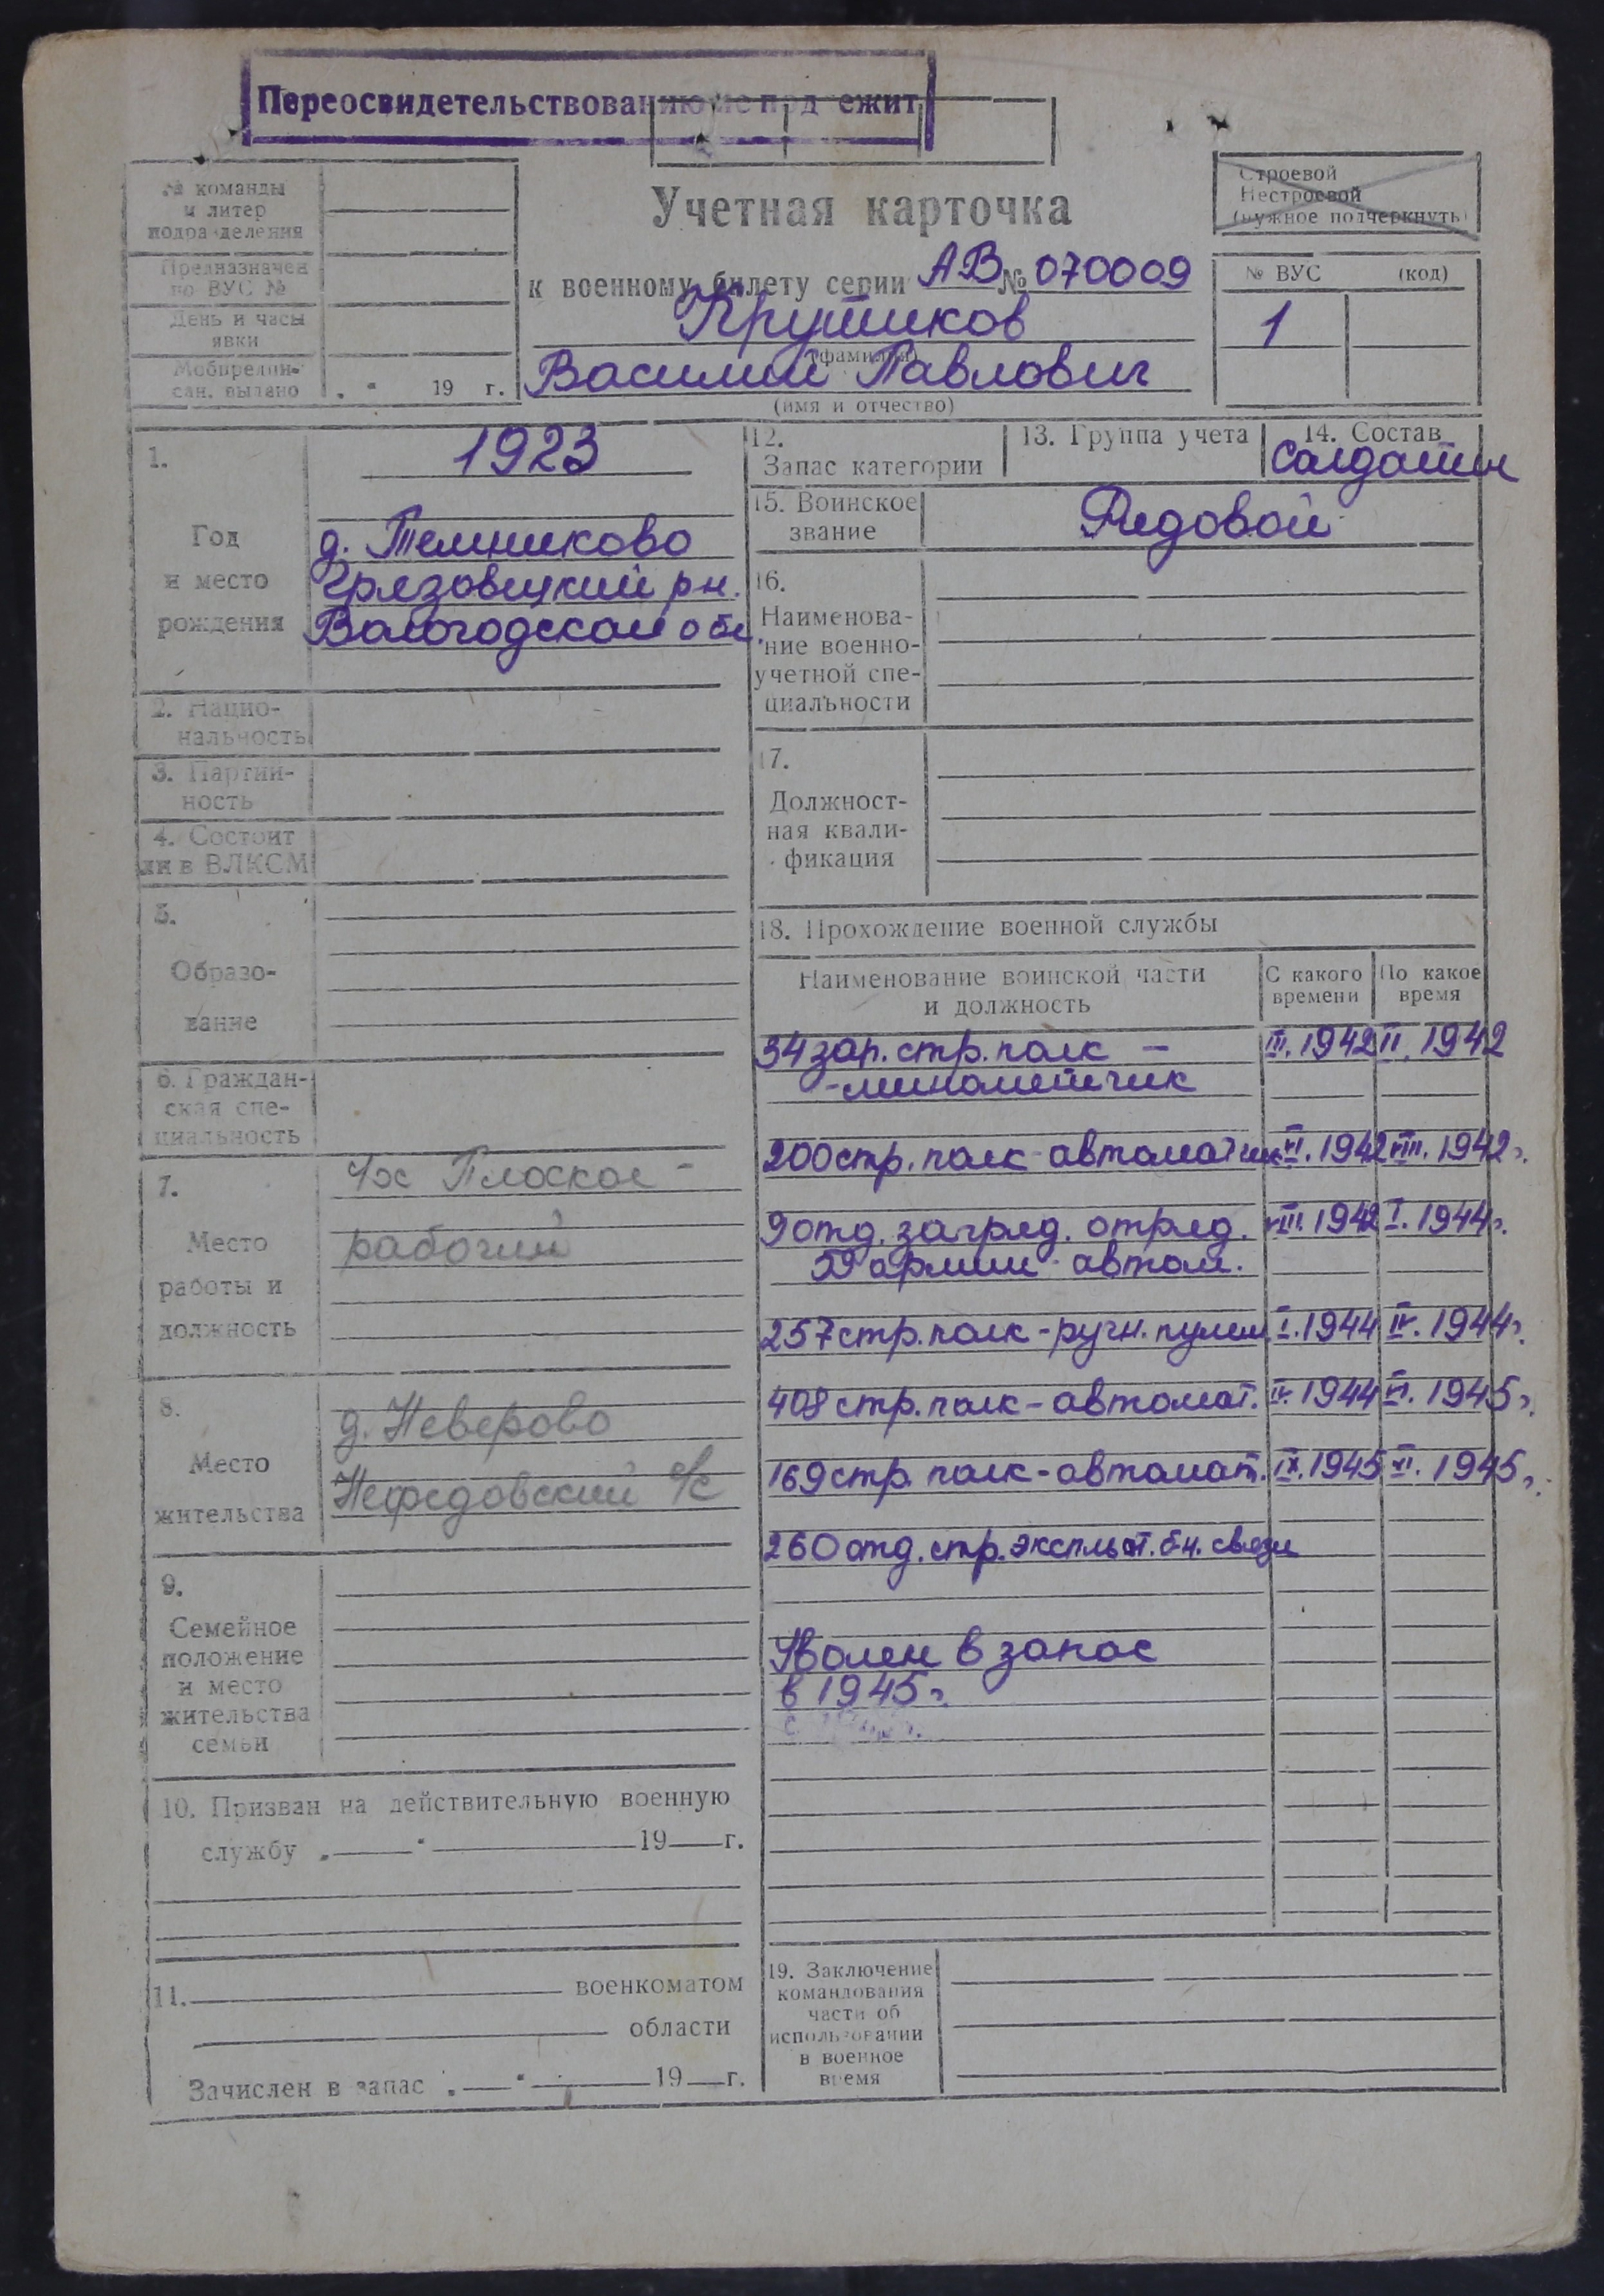 Переосвидетельствованию не подлежит
№ команды
и литер
подразделения
Предназначен
по ВУС №
День и часы
явки
Мобпредпи-
сан. выдано „ “ 19 г.
Учетная карточка
к военному билету серии АВ № 070009
Крутиков
(фамилия)
Василий Павлович
(имя и отчество)
Строевой
Нестроевой
(нужное подчеркнуть)
№ ВУС (код)
1
1. 1923
Год
и место
рождения
д. Темниково
Грязовецкий рн.
Вологодской обл.
2. Нацио-
нальность
3. Партий-
ность
4. Состоит
ли в ВЛКСМ
5.
Образо-
вание
6. Граждан-
ская спе-
циальность
7.
Место
работы и
должность
Плоское -
рабочий
8.
Место
жительства
д. Неверово
Нефедовский с/с
9.
Семейное
положение
и место
жительства
семьи
10. Призван на действительную военную
службу „ “ 19 г.
11. военкоматом
области
Зачислен в запас „ “ 19 г.
12.
Запас категории
13. Группа учета
14. Состав
Солдатск
15. Воинское
звание
Рядовой
16.
Наименова-
ние военно-
учетной спе-
циальности
17.
Должност-
ная квали-
фикация
18. Прохождение военной службы
Наименование воинской части
и должность
С какого
времени
По какое
время
34 зап. стр. полк - III. 1942 1942
- минометчик
200 стр. полк - автоматчик VI. 1942 VIII. 1942 г.
9 отд. загряд. отряд. VIII. 1942 I. 1944 г.
59 армии - автом.
257 стр. полк - ручн. пулем I. 1944 IV. 1944 г.
408 стр. полк - автомат. IV. 1944 VI. 1945 г.
169 стр. полк - автомат. IX. 1945 XI. 1945 г.
260 отд. стр. эксплоат. б-н. связи
Уволен в запас
в 1945 г.
19. Заключение
командования
части об
использовании
в военное
время